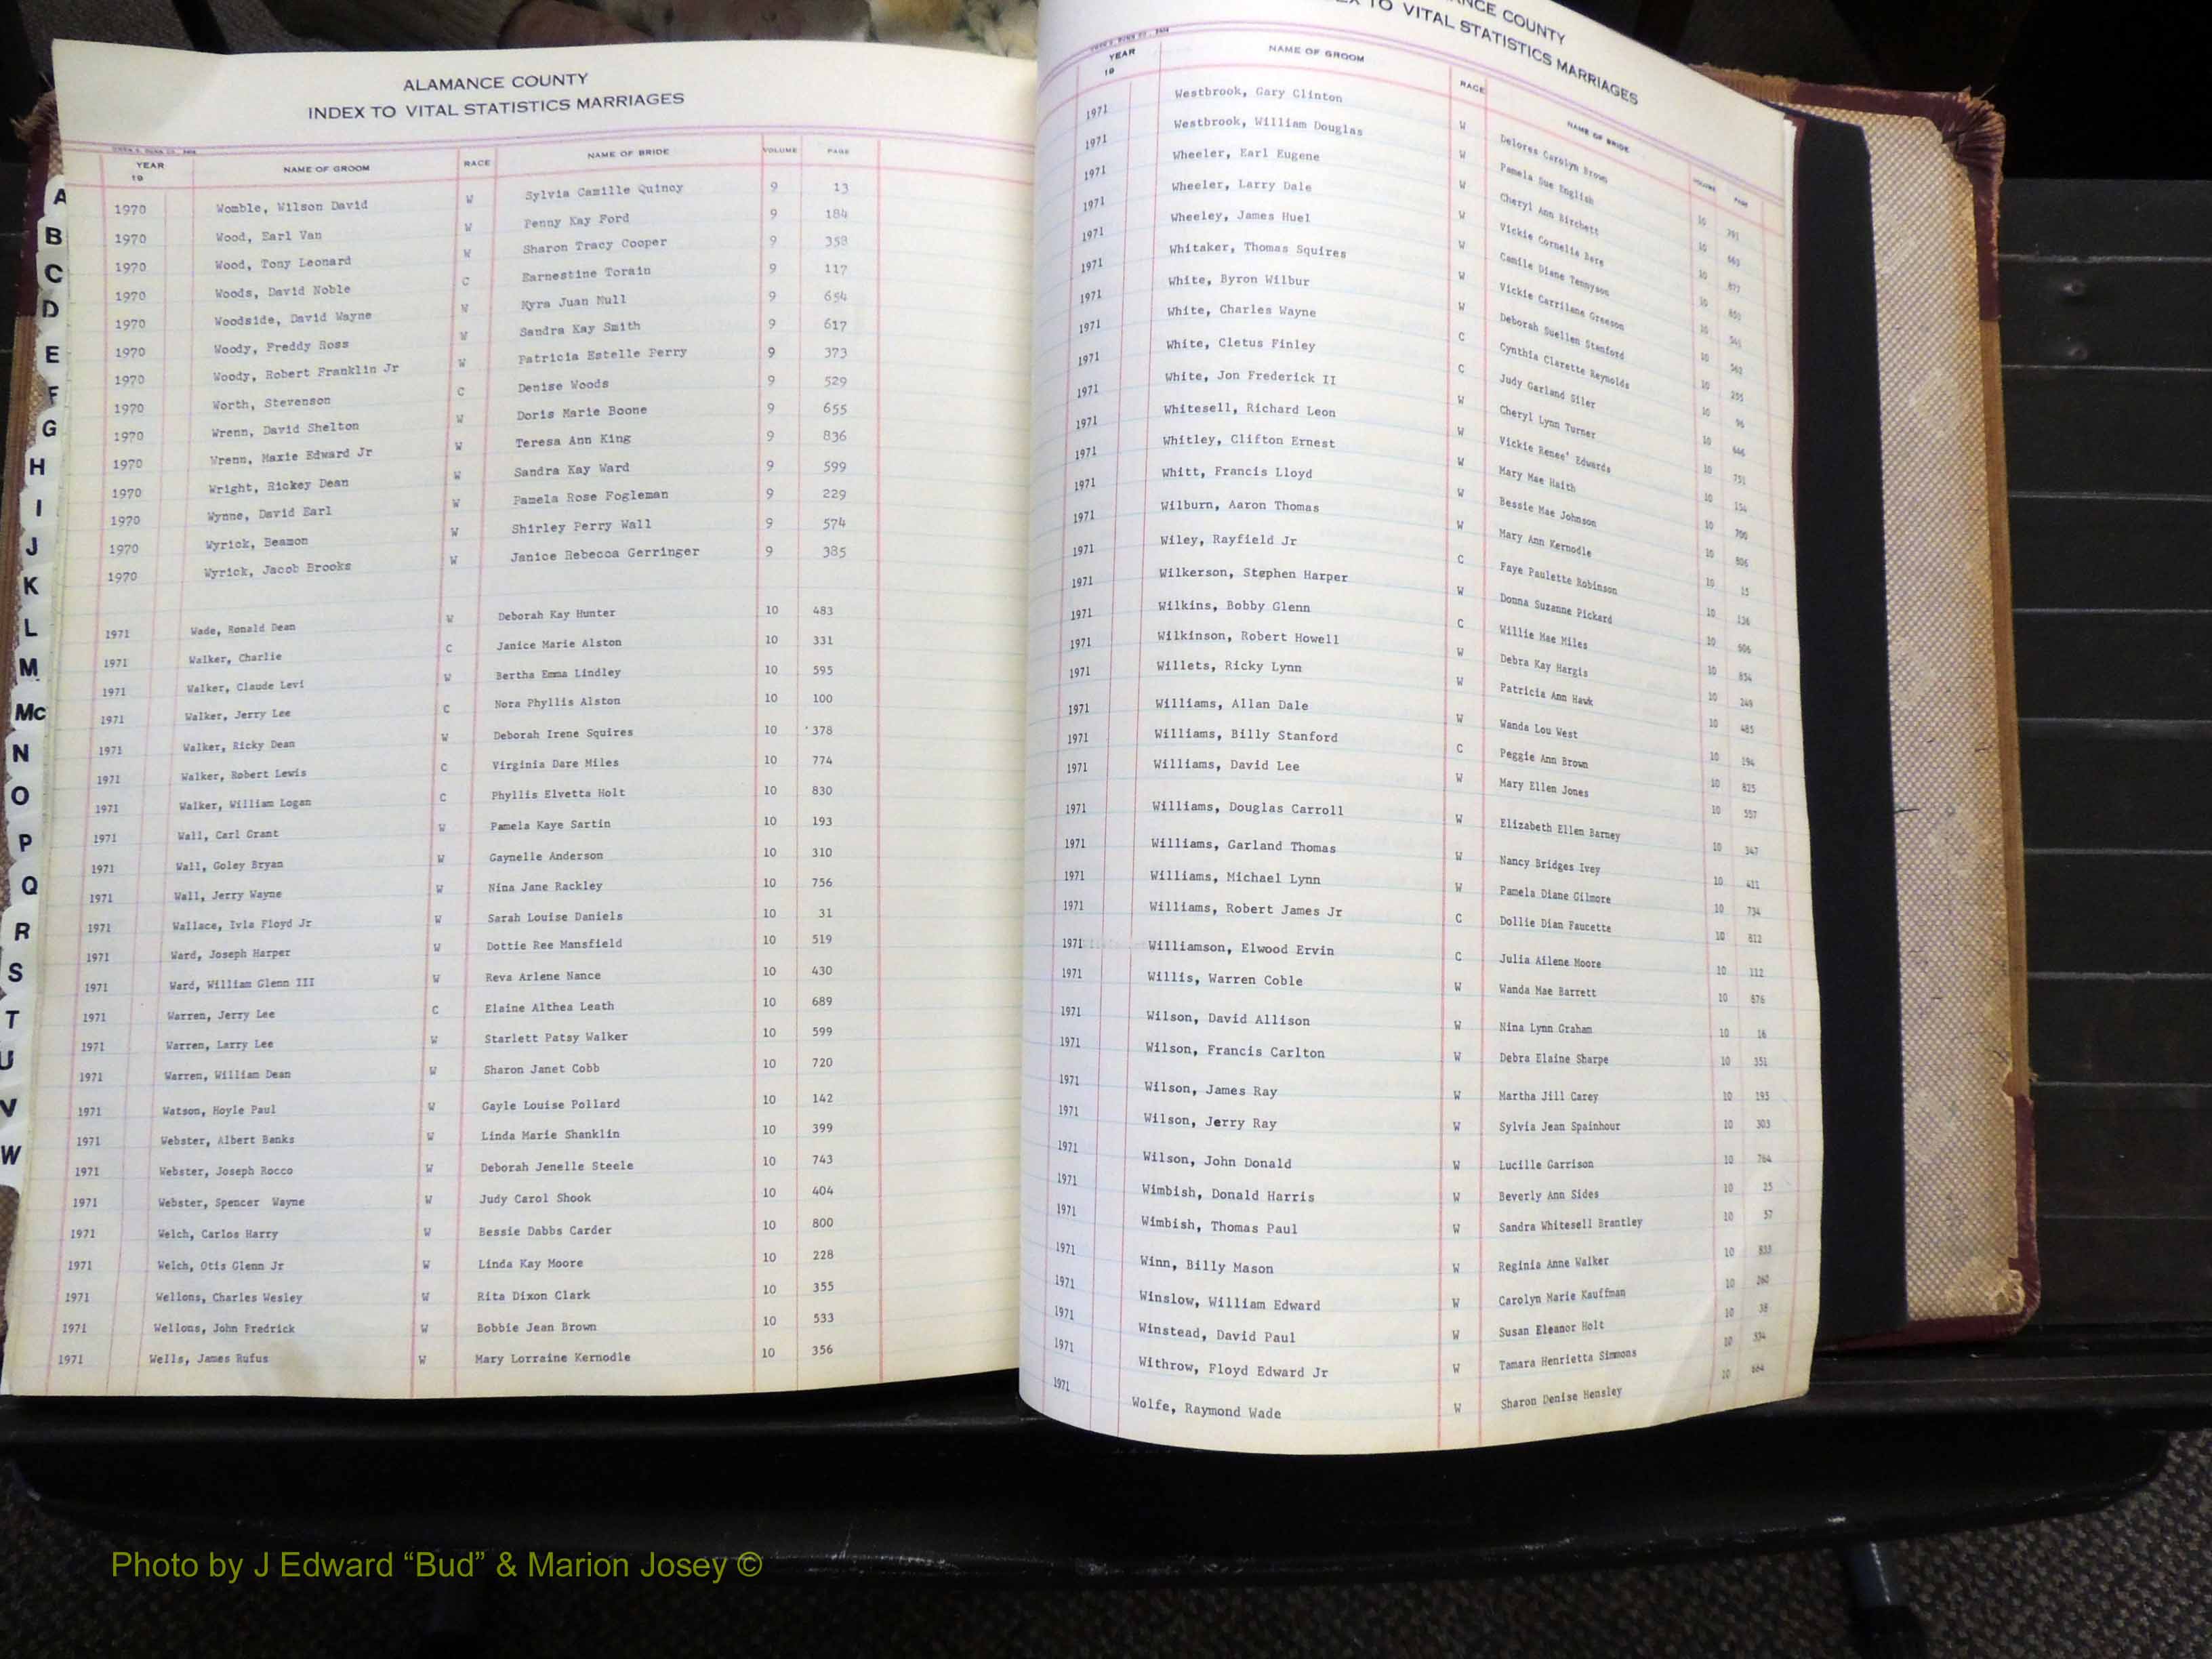 ALAMANCE COUNTY
INDEX TO VITAL STATISTICS MARRIAGES
YEAR 19 NAME OF GROOM RACE NAME OF BRIDE VOLUME PAGE
1970 Womble, Wilson David W Sylvia Camille Quincy 9 13
1970 Wood, Earl Van W Penny Kay Ford 9 184
1970 Wood, Tony Leonard W Sharon Tracy Cooper 9 358
1970 Woods, David Noble C Earnestine Torain 9 117
1970 Woodside, David Wayne W Myra Juan Mull 9 654
1970 Woody, Freddy Ross W Sandra Kay Smith 9 617
1970 Woody, Robert Franklin Jr W Patricia Estelle Perry 9 373
1970 Worth, Stevenson C Denise Woods 9 529
1970 Wrenn, David Shelton W Doris Marie Boone 9 655
1970 Wrenn, Maxie Edward Jr W Teresa Ann King 9 836
1970 Wright, Rickey Dean W Sandra Kay Ward 9 599
1970 Wynne, David Earl W Pamela Rose Fogleman 9 229
1970 Wyrick, Beamon W Shirley Perry Wall 9 574
1970 Wyrick, Jacob Brooks W Janice Rebecca Gerringer 9 385
1971 Wade, Ronald Dean W Deborah Kay Hunter 10 483
1971 Walker, Charlie C Janice Marie Alston 10 331
1971 Walker, Claude Levi W Bertha Emma Lindley 10 595
1971 Walker, Jerry Lee C Nora Phyllis Alston 10 100
1971 Walker, Ricky Dean W Deborah Irene Squires 10 378
1971 Walker, Robert Lewis C Virginia Dare Miles 10 774
1971 Walker, William Logan C Phyllis Elvetta Holt 10 830
1971 Wall, Carl Grant W Pamela Kaye Sartin 10 193
1971 Wall, Goley Bryan W Gaynelle Anderson 10 310
1971 Wall, Jerry Wayne W Nina Jane Rackley 10 756
1971 Wallace, Ivla Floyd Jr W Sarah Louise Daniels 10 31
1971 Ward, Joseph Harper W Dottie Ree Mansfield 10 519
1971 Ward, William Glenn III W Reva Arlene Nance 10 430
1971 Warren, Jerry Lee C Elaine Althea Leath 10 689
1971 Warren, Larry Lee W Starlett Patsy Walker 10 599
1971 Warren, William Dean W Sharon Janet Cobb 10 720
1971 Watson, Hoyle Paul W Gayle Louise Pollard 10 142
1971 Webster, Albert Banks W Linda Marie Shanklin 10 399
1971 Webster, Joseph Rocco W Deborah Jenelle Steele 10 743
1971 Webster, Spencer Wayne W Judy Carol Shook 10 404
1971 Welch, Carlos Harry W Bessie Dabbs Carder 10 800
1971 Welch, Otis Glenn Jr W Linda Kay Moore 10 228
1971 Wellons, Charles Wesley W Rita Dixon Clark 10 355
1971 Wellons, John Fredrick W Bobbie Jean Brown 10 533
1971 Wells, James Rufus W Mary Lorraine Kernodle 10 356
A
B
C
D
E
F
G
H
I
J
K
L
M
Mc
N
O
P
Q
R
S
T
U
V
W
COUNTY
TO VITAL STATISTICS MARRIAGES
YEAR 19 NAME OF GROOM RACE NAME OF BRIDE VOLUME PAGE
1971 Westbrook, Gary Clinton W Delores Carolyn Brown 10
1971 Westbrook, William Douglas W Pamela Sue English 10
1971 Wheeler, Earl Eugene W Cheryl Ann Birchett 10 877
1971 Wheeler, Larry Dale W Vickie Cornelia Bere 10
1971 Wheeley, James Huel W Camile Diane Tennyson 10
1971 Whitaker, Thomas Squires W Vickie Carrilane Greeson 10
1971 White, Byron Wilbur W Deborah Suellen Stanford 10
1971 White, Charles Wayne C Cynthia Clarette Reynolds 10 96
1971 White, Cletus Finley C Judy Garland Siler 10
1971 White, Jon Frederick II W Cheryl Lynn Turner 10
1971 Whitesell, Richard Leon W Vickie Renee' Edwards 10 154
1971 Whitley, Clifton Ernest W Mary Mae Haith 10
1971 Whitt, Francis Lloyd W Bessie Mae Johnson 10 806
1971 Wilburn, Aaron Thomas W Mary Ann Kernodle 10 15
1971 Wiley, Rayfield Jr C Faye Paulette Robinson 10 136
1971 Wilkerson, Stephen Harper W Donna Suzanne Pickard 10 606
1971 Wilkins, Bobby Glenn C Willie Mae Miles 10 854
1971 Wilkinson, Robert Howell W Debra Kay Hargis 10 249
1971 Willets, Ricky Lynn W Patricia Ann Hawk 10 485
1971 Williams, Allan Dale W Wanda Lou West 10 194
1971 Williams, Billy Stanford C Peggie Ann Brown 10 825
1971 Williams, David Lee W Mary Ellen Jones 10 557
1971 Williams, Douglas Carroll W Elizabeth Ellen Barney 10 347
1971 Williams, Garland Thomas W Nancy Bridges Ivey 10 411
1971 Williams, Michael Lynn W Pamela Diane Gilmore 10 734
1971 Williams, Robert James Jr C Dollie Dian Faucette 10 812
1971 Williamson, Elwood Ervin C Julia Ailene Moore 10 112
1971 Willis, Warren Coble W Wanda Mae Barrett 10 876
1971 Wilson, David Allison W Nina Lynn Graham 10 16
1971 Wilson, Francis Carlton W Debra Elaine Sharpe 10 351
1971 Wilson, James Ray W Martha Jill Carey 10 195
1971 Wilson, Jerry Ray W Sylvia Jean Spainhour 10 303
1971 Wilson, John Donald W Lucille Garrison 10 764
1971 Wimbish, Donald Harris W Beverly Ann Sides 10 25
1971 Wimbish, Thomas Paul W Sandra Whitesell Brantley 10 57
1971 Winn, Billy Mason W Reginia Anne Walker 10 833
1971 Winslow, William Edward W Carolyn Marie Kauffman 10 260
1971 Winstead, David Paul W Susan Eleanor Holt 10 38
1971 Withrow, Floyd Edward Jr W Tamara Henrietta Simmons 10 334
1971 Wolfe, Raymond Wade W Sharon Denise Hensley 10 664
Photo by J Edward “Bud” & Marion Josey ©